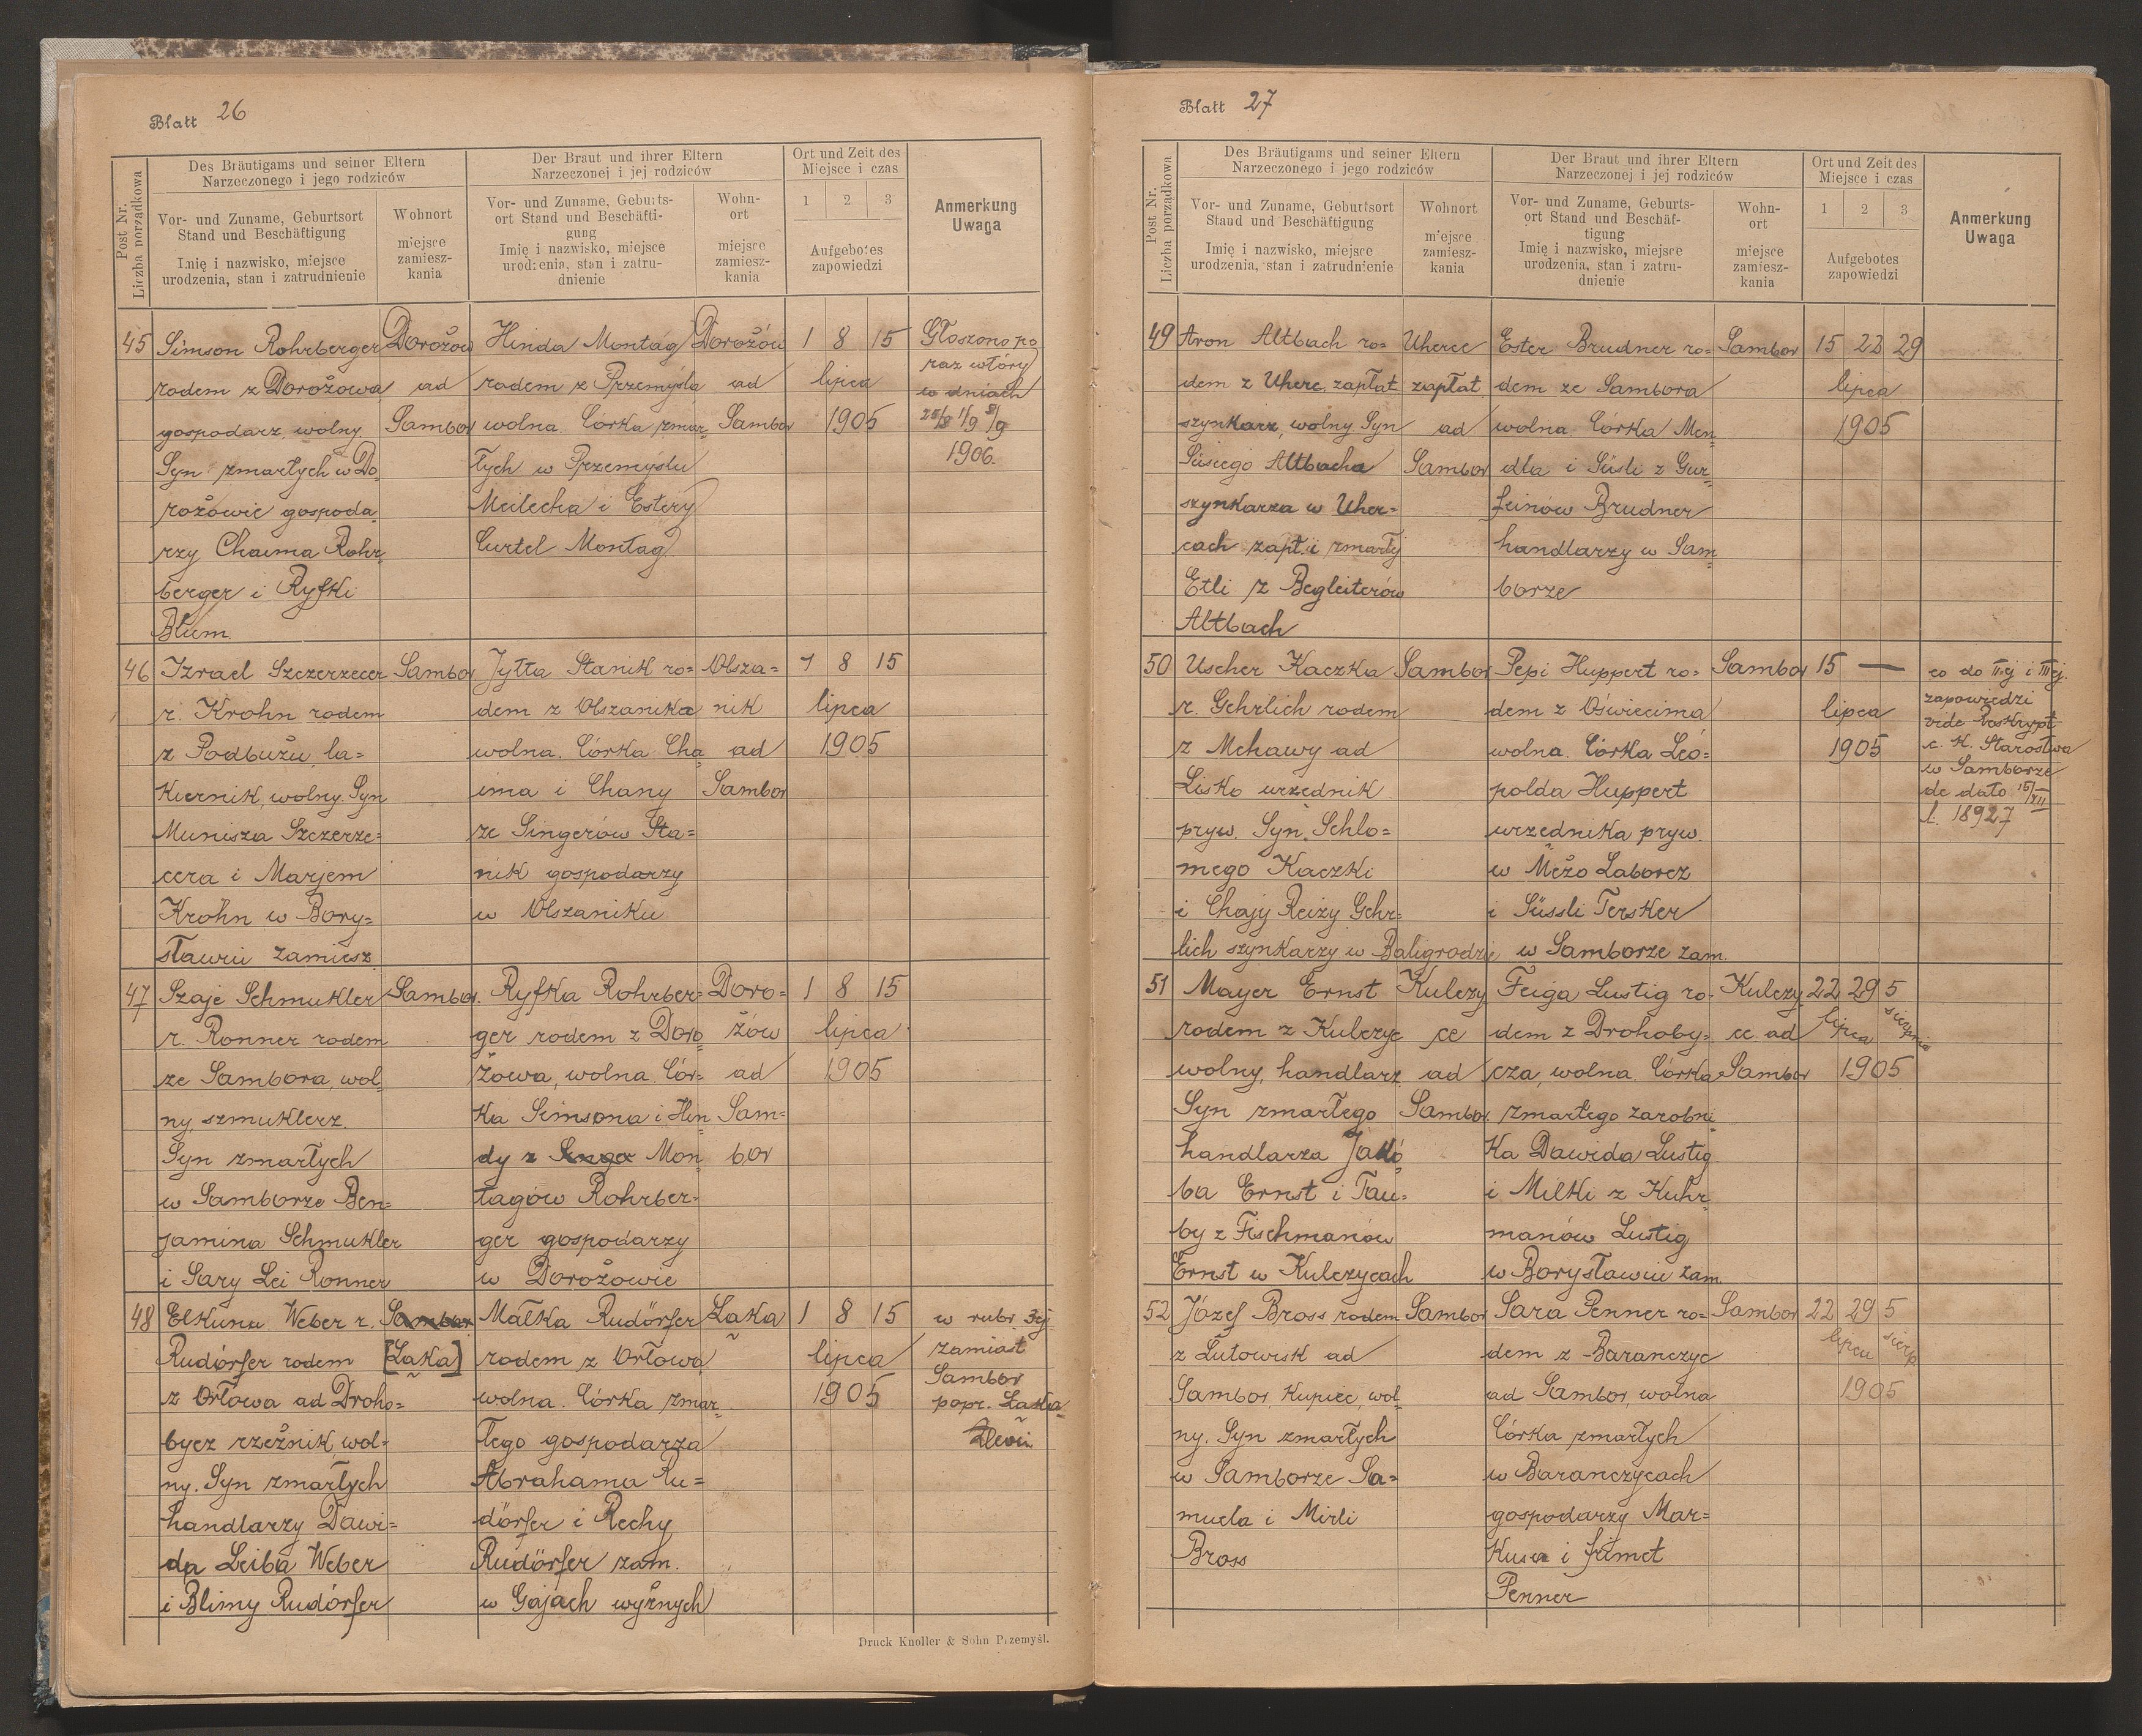 Blatt 26
Post Nr.
Liczba porządkowa
Des Bräutigams und seiner Eltern
Narzeczonego i jego rodziców
Der Braut und ihrer Eltern
Narzeczonej i jej rodziców
Ort und Zeit des
Miejsce i czas
Anmerkung
Uwaga
Vor- und Zuname, Geburtsort
Stand und Beschäftigung
Imię i nazwisko, miejsce
urodzenia, stan i zatrudnienie
Wohnort
miejsce
zamiesz-
kania
Vor- und Zuname, Geburts-
ort Stand und Beschäfti-
gung
Imię i nazwisko, miejsce
urodzenia, stan i zatru-
dnienie
Wohn-
ort
miejsce
zamiesz-
kania
1 2 3
Aufgebotes
zapowiedzi
45
Simson Rohrberger
rodem z Dorożowa
gospodarz, wolny.
Syn zmarłych w Do-
rożowie gospoda-
rzy Chaima Rohr-
berger i Ryfki
Blum
Dorożów
ad
Sambor
Hinda Montag
rodem z Przemyśla
wolna. Córka zmar-
łych w Przemyślu
Meilecha i Estery
Curtel Montag
Dorożów
ad
Sambor
1 8 15
lipca
1905
Głoszono po
raz wtóry
w dniach
25/8 1/9 8/9
1906.
46
Izrael Szczerzecer
r. Krohn rodem
z Podbużu, la-
kiernik, wolny. Syn
Munisza Szczerze-
cera i Marjem
Krohn w Bory-
sławiu zamiesz.
Sambor
Jytta Stanik ro-
dem z Olszanika
wolna. Córka Cha-
ima i Chany
ze Singerów Sta-
nik gospodarzy
w Olszaniku
Olsza-
nik
ad
Sambor
1 8 15
lipca
1905
47
Szaje Schmukler
r. Ronner rodem
ze Sambora, wol-
ny, szmuklerz.
Syn zmarłych
w Samborze Ben-
jamina Schmukler
i Sary Lei Ronner
Sambor.
Ryfka Rohrber-
ger rodem z Doro-
żowa, wolna. Cór-
ka Simsona i Hin-
dy z Mon-
tagów Rohrber-
ger gospodarzy
w Dorożowie
Doro-
żów
ad
Sam-
bor
1 8 15
lipca
1905
48
Elkuna Weber r.
Rudörfer rodem
z Orłowa ad Droho-
bycz rzeźnik, wol-
ny. Syn zmarłych
handlarzy Dawi-
da Leiba Weber
i Blimy Rudörfer
Sambor
[Łąka]
Małka Rudörfer
rodem z Orłowa
wolna. Córka zmar-
łego gospodarza
Abrahama Ru-
dörfer i Rechy
Rudörfer zam.
w Gajach wyżnych
Łąka
1 8 15
lipca
1905
w rubr. 3ej
zamiast
Sambor
popr. Łąka
Druck Knoller & Sohn Przemyśl.
Blatt 27
Post Nr.
Liczba porządkowa
Des Bräutigams und seiner Eltern
Narzeczonego i jego rodziców
Der Braut und ihrer Eltern
Narzeczonej i jej rodziców
Ort und Zeit des
Miejsce i czas
Anmerkung
Uwaga
Vor- und Zuname, Geburtsort
Stand und Beschäftigung
Imię i nazwisko, miejsce
urodzenia, stan i zatrudnienie
Wohnort
miejsce
zamiesz-
kania
Vor- und Zuname, Geburts-
ort Stand und Beschäf-
tigung
Imię i nazwisko, miejsce
urodzenia, stan i zatru-
dnienie
Wohn-
ort
miejsce
zamiesz-
kania
1 2 3
Aufgebotes
zapowiedzi
49
Aron Altbach ro-
dem z Uherc. zapłat
szynkarz, wolny. Syn
Süsiego Altbacha
szynkarza w Uher-
cach zapł. i zmarłej
Etli z Begleiterów
Altbach
Uherce
zapłat
ad
Sambor
Ester Brudner ro-
dem ze Sambora
wolna. Córka Men-
dla i Süsli z Gur-
feinów Brudner
handlarzy w Sam-
borze
Sambor
15 22 29
lipca
1905
50
Uscher Kaczka
r. Gehrlich rodem
z Mchawy ad
Lisko urzędnik
pryw. Syn Schlo-
mego Kaczki
i Chaji Reizy Gehr-
lich szynkarzy w Baligrodzie
Sambor
Pepi Huppert ro-
dem z Oświecima
wolna. Córka Leo-
polda Huppert
urzędnika pryw.
w Mėžo Laborcz
i Süssli Tersker
w Samborze zam.
Sambor
15 —
lipca
1905
co do II.ej i III ej.
zapowiedzi
vide Reskrypt
c. k. Starostwa
w Samborze
de dato 15/XII
l. 18927
51
Mayer Ernst
rodem z Kulczyc
wolny, handlarz
Syn zmarłego
handlarza Jakó-
ba Ernst i Tau-
by z Fischmanów
Ernst w Kulczycach
Kulczy
ce
ad
Sambor.
Feiga Lustig ro-
dem z Drohoby-
cza, wolna. Córka
zmarłego zarobni-
ka Dawida Lustig
i Milki z Kuhr-
manów Lustig
w Borysławiu zam.
Kulczy
ce ad
Sambor
22 29 5
lipca sierpnia
1905
52
Józef Bross rodem
z Lutowisk ad
Sambor, kupiec, wol-
ny. Syn zmarłych
w Samborze Sa-
muela i Mirli
Bross
Sambor
Sara Penner ro-
dem z Baranczyc
ad Sambor, wolna
Córka zmarłych
w Baranczycach
gospodarzy Mar-
kusa i Frimet
Penner
Sambor
22 29 5
lipca sierp
1905